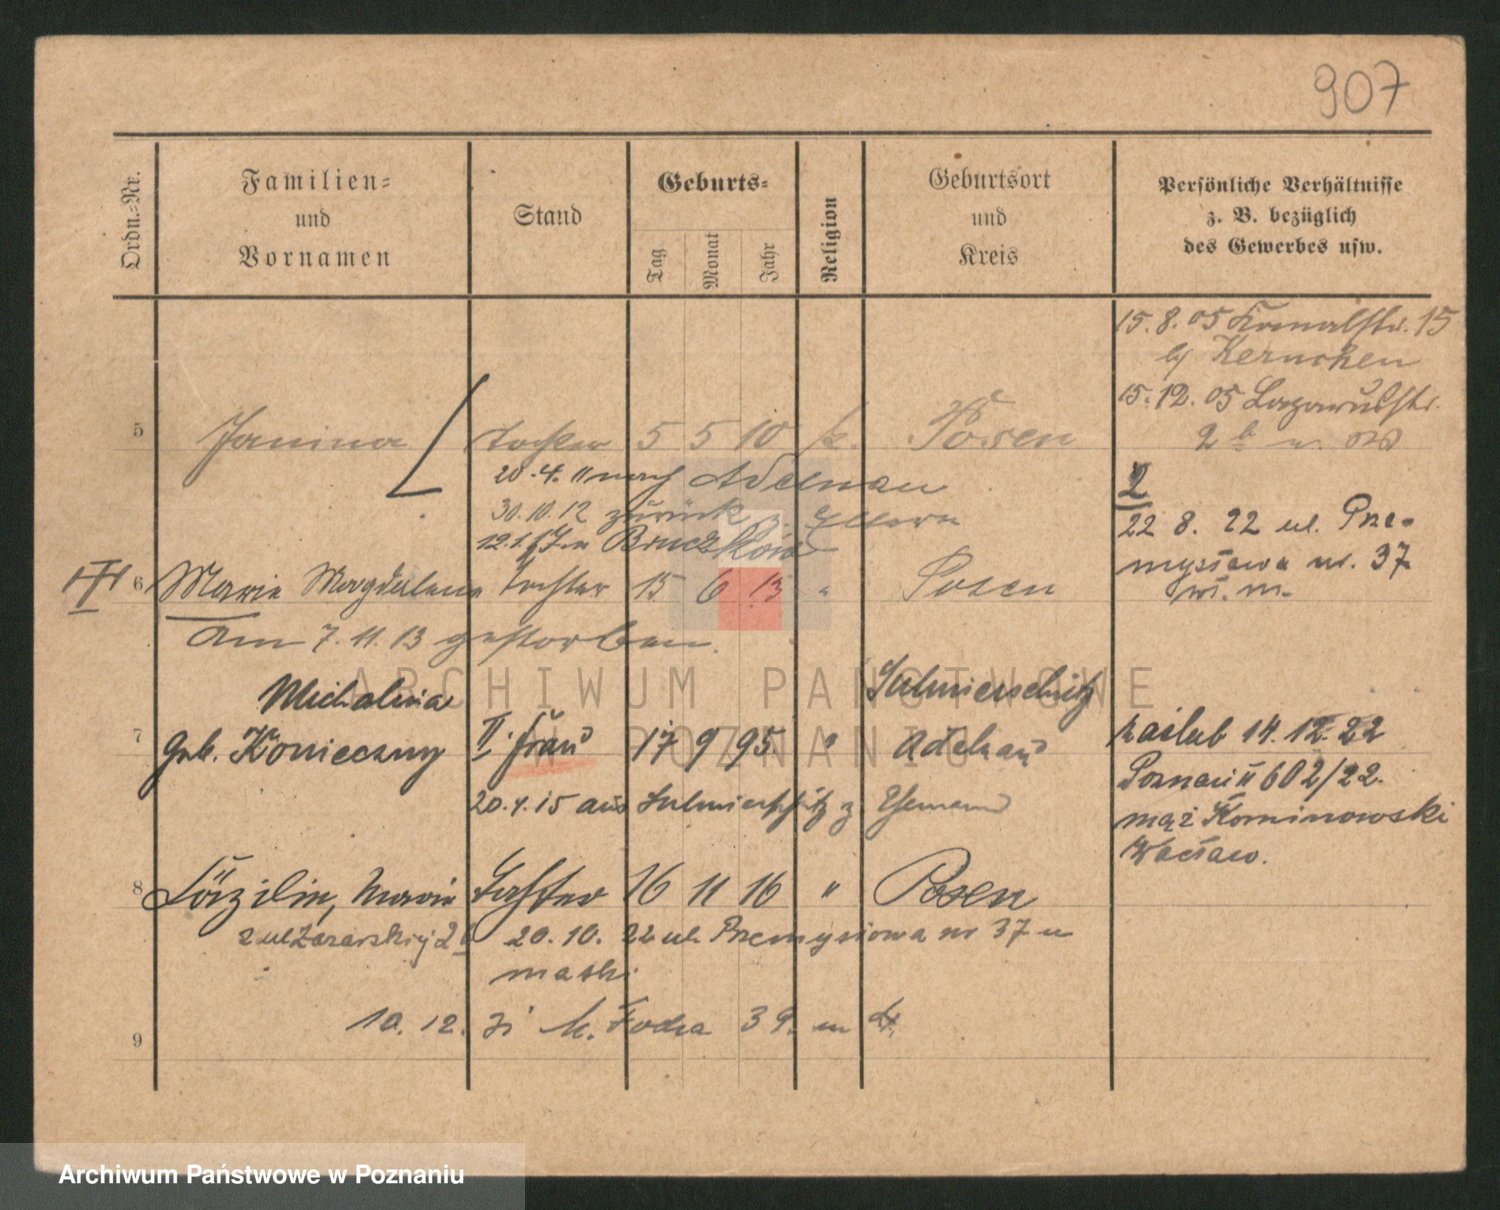 907
Ordn.-Nr.
Familien-
und
Vornamen
Stand
Geburts-
Tag
Monat
Jahr
Religion
Geburtsort
und
Kreis
Persönliche Verhältnisse
z. B. bezüglich
des Gewerbes usw.
15. 8. 05 Kanalstr. 15
b/
15. 12. 05 Lazarusstr.
2 b
5 Janina Tochter 5 5 10 k. Posen
20. 4. 11 nach Adelnau
30. 10. 12 zurück z. Eltern
Bruczków
2
22 8. 22 ul. Prze-
mysłowa nr. 37
w. m.
III 6 Marie Magdalena Tochter 15 6 13 " Posen
Am 7. 11. 13 gestorben.
Michalina Sulmierschütz
7 geb. Konieczny II. Frau 17 9 95 " Adelnau
20. 4. 15 aus Sulmierschütz z. Ehemann
zaślub 14. 12. 22
Poznań II 602/22.
mąż Kominowski
Wacław.
8 Cäzilie, Marie Tochter 16 11 16 " Posen
z ul Łazarskiej 2b 20. 10. 22 ul. Przemysłowa nr 37 u
matki
10. 12. 39.
9
ARCHIWUM PAŃSTWOWE
W POZNANIU
Archiwum Państwowe w Poznaniu